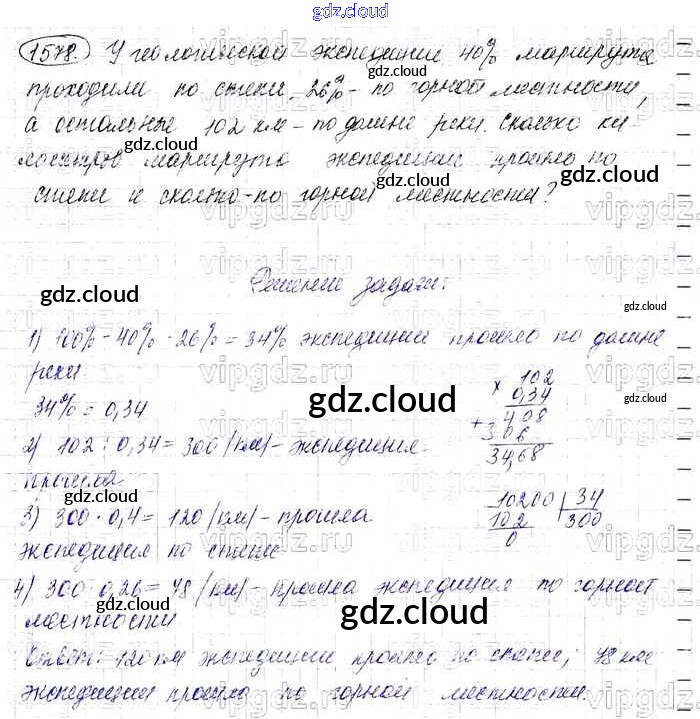 gdz.cloud
1578. У геологической экспедиции 40% маршрута
проходили по степи, 26% - по горной местности,
а остальные 102 км - по долине реки. Сколько ки-
лометров маршрута экспедиции прошло по
степи и сколько - по горной местности?
gdz.cloud
Решение задачи:
1) 100% - 40% - 26% = 34% экспедиции прошло по долине
реки.
34% = 0,34
2) 102 : 0,34 = 300 (км) - экспедиция
прошла
3) 300 · 0,4 = 120 (км) - прошла
экспедиция по степи
4) 300 · 0,26 = 78 (км) - прошла экспедиция по горной
местности
Ответ: 120 км экспедиции прошло по степи; 78 км
экспедиции прошло по горной местности.
× 102
0,34
+ 408
306
34,68
10200 | 34
102 300
0
gdz.cloud
gdz.cloud
gdz.cloud
gdz.cloud
gdz.cloud
gdz.cloud
gdz.cloud
gdz.cloud
gdz.cloud
vipgdz.ru